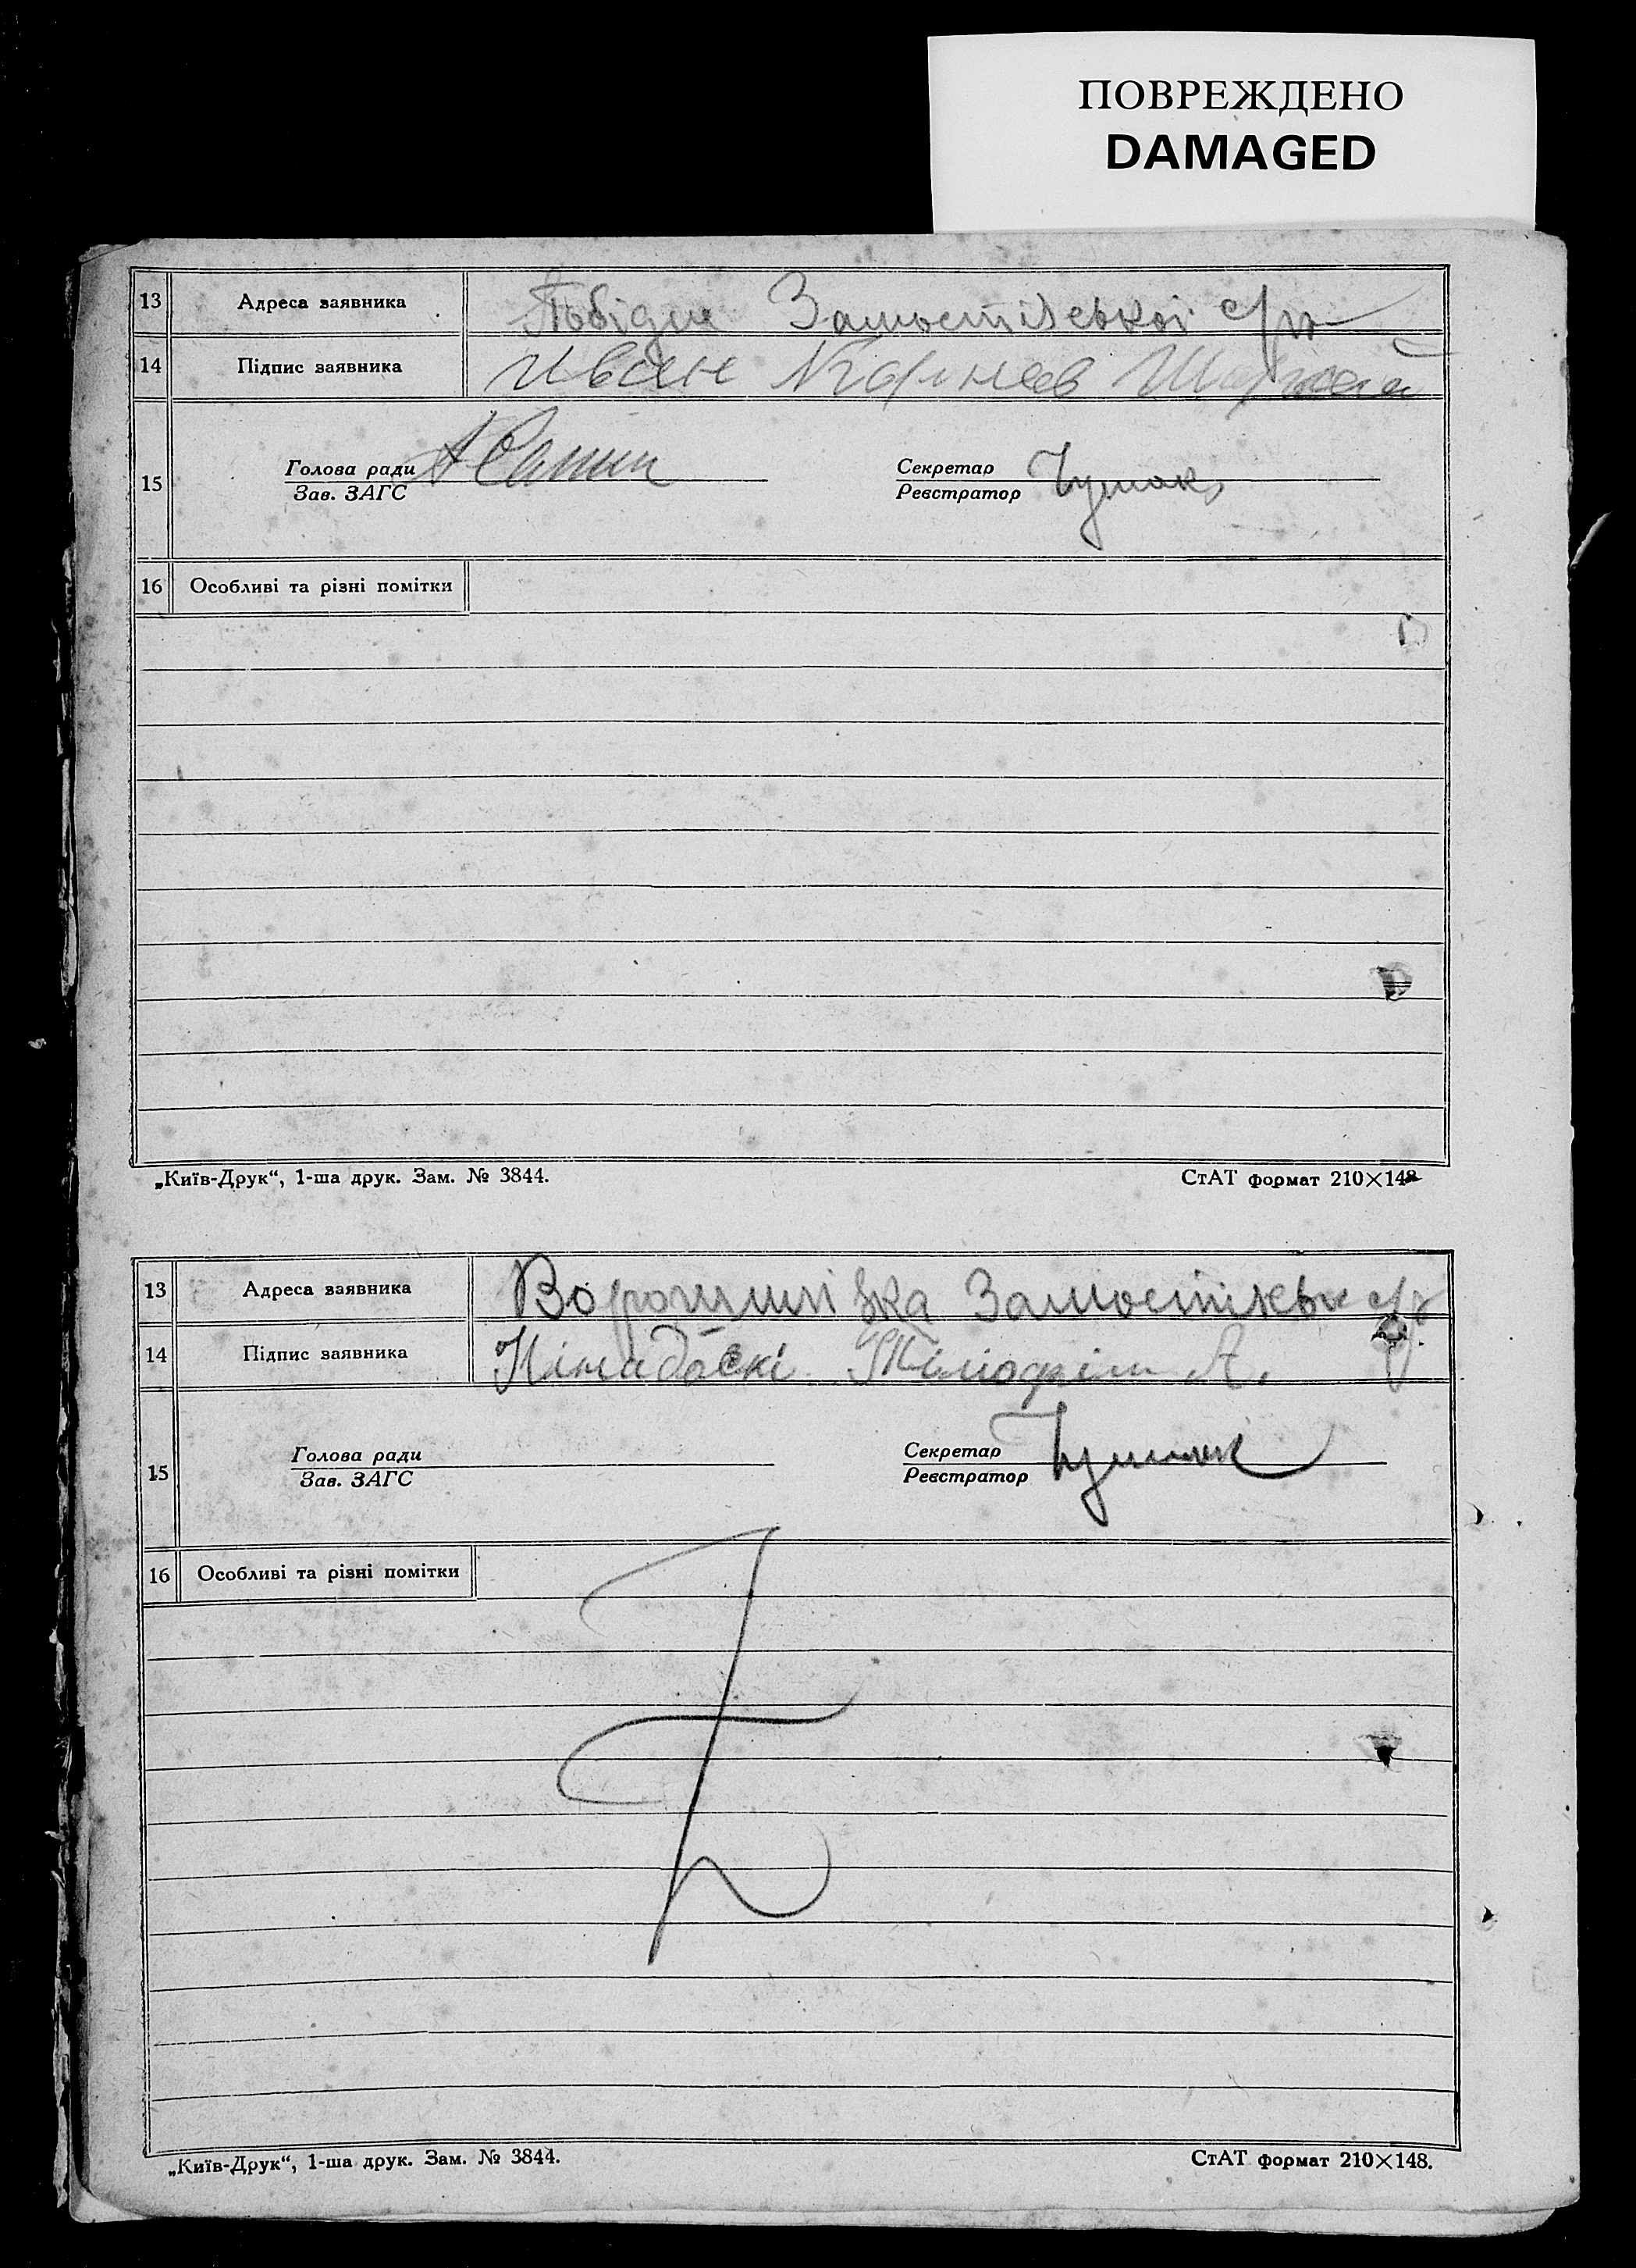 ПОВРЕЖДЕНО
DAMAGED
13 Адреса заявника Побідна Замостівської с/р
14 Підпис заявника Иван
15 Голова ради Секретар Чумак
Зав. ЗАГС Реєстратор
16 Особливі та різні помітки
„Київ-Друк“, 1-ша друк. Зам. № 3844. СтАТ формат 210×148
13 Адреса заявника Ворошилівка с/р
14 Підпис заявника А.
15 Голова ради Секретар Чумак
Зав. ЗАГС Реєстратор
16 Особливі та різні помітки
„Київ-Друк“, 1-ша друк. Зам. № 3844. СтАТ формат 210×148.